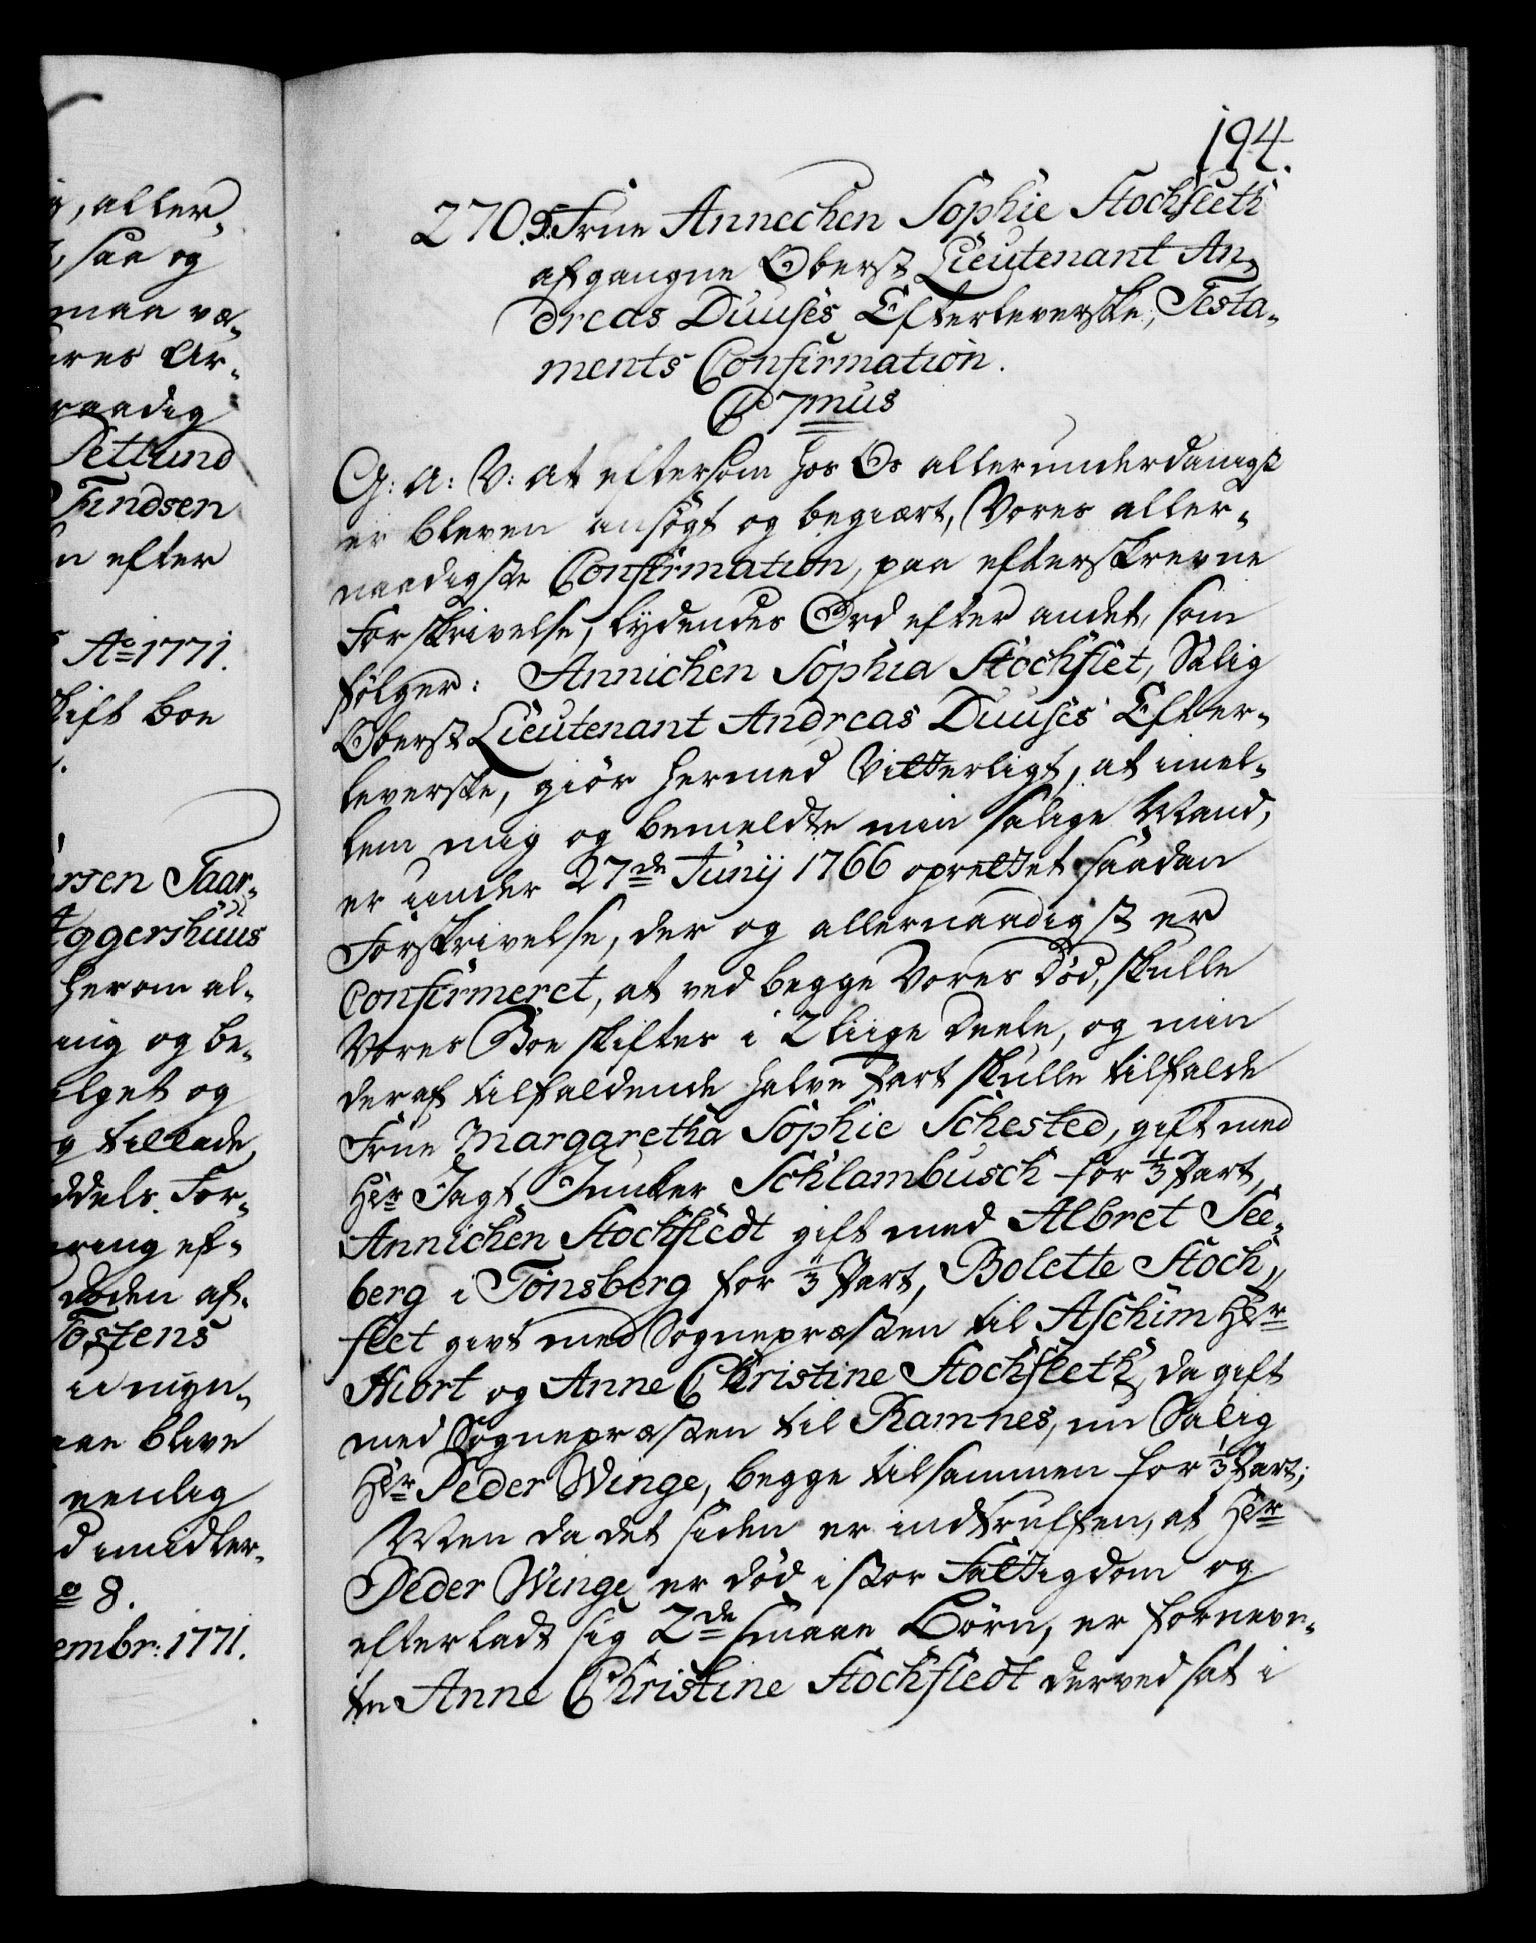 g, aller-
saa og
maa væ-
eres Ar-
raadig
Petlund
Findsen
n efter
Ao 1771.
skift boe
ørsen Taar-
Aggershuus
herom al-
ing og be-
elget og
g tillade,
ddels. For-
ering ef-
døden af-
Tostens
umyn-
aae blive
nenlig
d imidler-
o 8.
embr: 1771.
194.
270. Frue Annechen Sophie Stochfleth
afgangne Oberst Lieutenant An-
dreas Duuses Efterleverske, Testa-
ments Confirmation.
Cph 7mus
G: A: V: at eftersom hos Os allerunderdanigst
er bleven ansøgt og begiært, Vores aller-
naadigste Confirmation, paa efterskrevne
Forskrivelse, lydendes Ord efter andet, som
følger: Annichen Sophia Stochflet, Salig
Oberst Lieutenant Andreas Duuses Efter-
leverske, giør hermed Vitterligt, at imel-
lem mig og bemeldte min salige Mand,
er under 27de Junij 1766 oprettet saadan
Forskrivelse, der og allernaadigst er
Confirmeret, at ved begge Vores Død, skulle
Vores Boe skiftes i 2 liige Deele, og min
deraf tilfaldende halve Part skulle tilfalde
Frue Margaretha Sophie Sehested, gift med
Hr Jagt Junker Schlambusch for 1/3 Part,
Annichen Stochfledt gift med Albret See-
berg i Tønsberg for 1/3 Part, Bolette Stoch-
fleet givt med Sognepræsten til Aschim Hr
Hiort og Anne Christine Stochfleth, da gift
med Sognepræsten til Ramnes, nu Salig
Hr Peder Winge, begge tilsammen for 1/3 Part;
Men da det siden er indtruffen, at Hr
Peder Winge er død i stor Fattigdom og
efterladt sig 2de smaae Børn, er fornevn-
te Anne Christine Stochfledt derved sat i